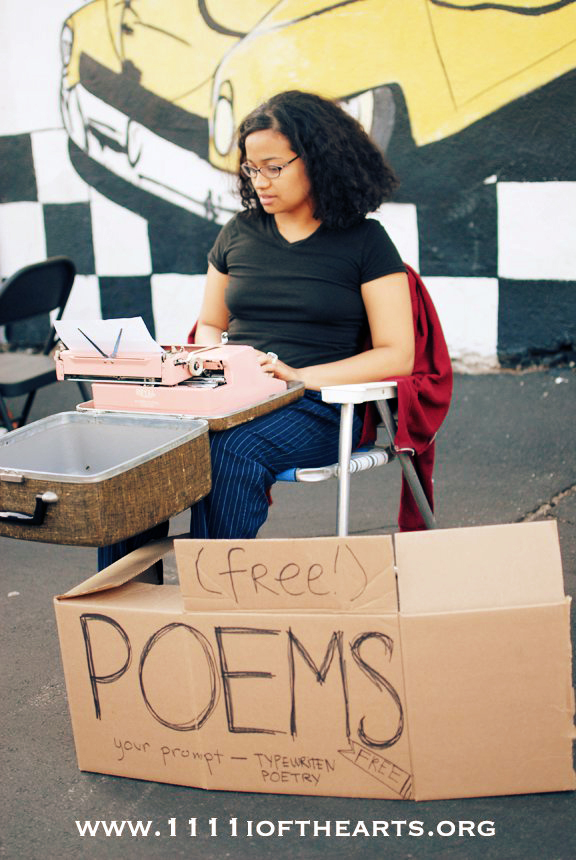 (free!)
POEMS
your prompt — TYPEWRITEN
POETRY
FREE!
www.1111ofthearts.org